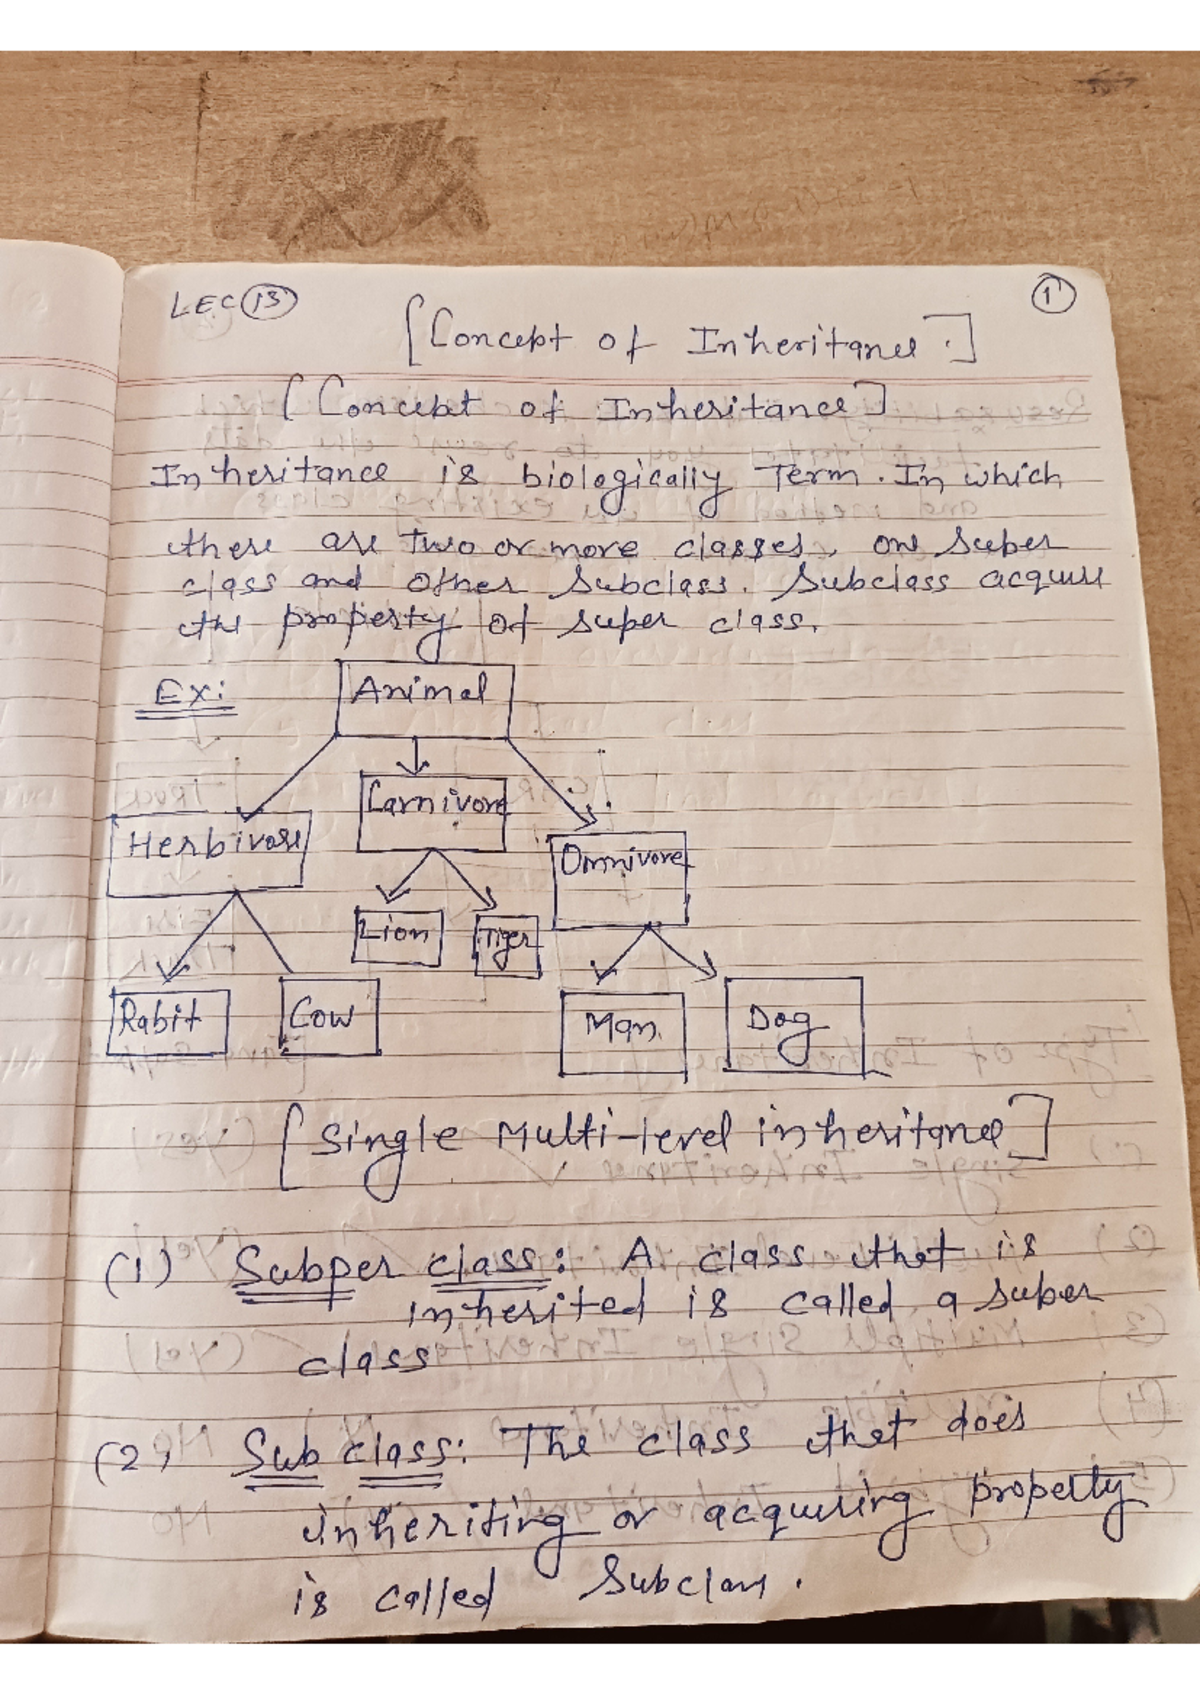 LEC 13
1
[Concept of Inheritance.]
[Concept of Inheritance]
Inheritance is biologically Term. In which
there are two or more classes, one Super
class and Other Subclass. Subclass acquire
the property of super class.
Ex:
Animal
Carnivore
Herbivore
Omnivore
Lion
Tiger
Rabit
Cow
Man.
Dog
[Single Multi-level inheritance]
(1) Subper class: A class that is
inherited is called a super
class
(2) Sub class: The class that does
inheriting or acquiring property
is called Subclass.